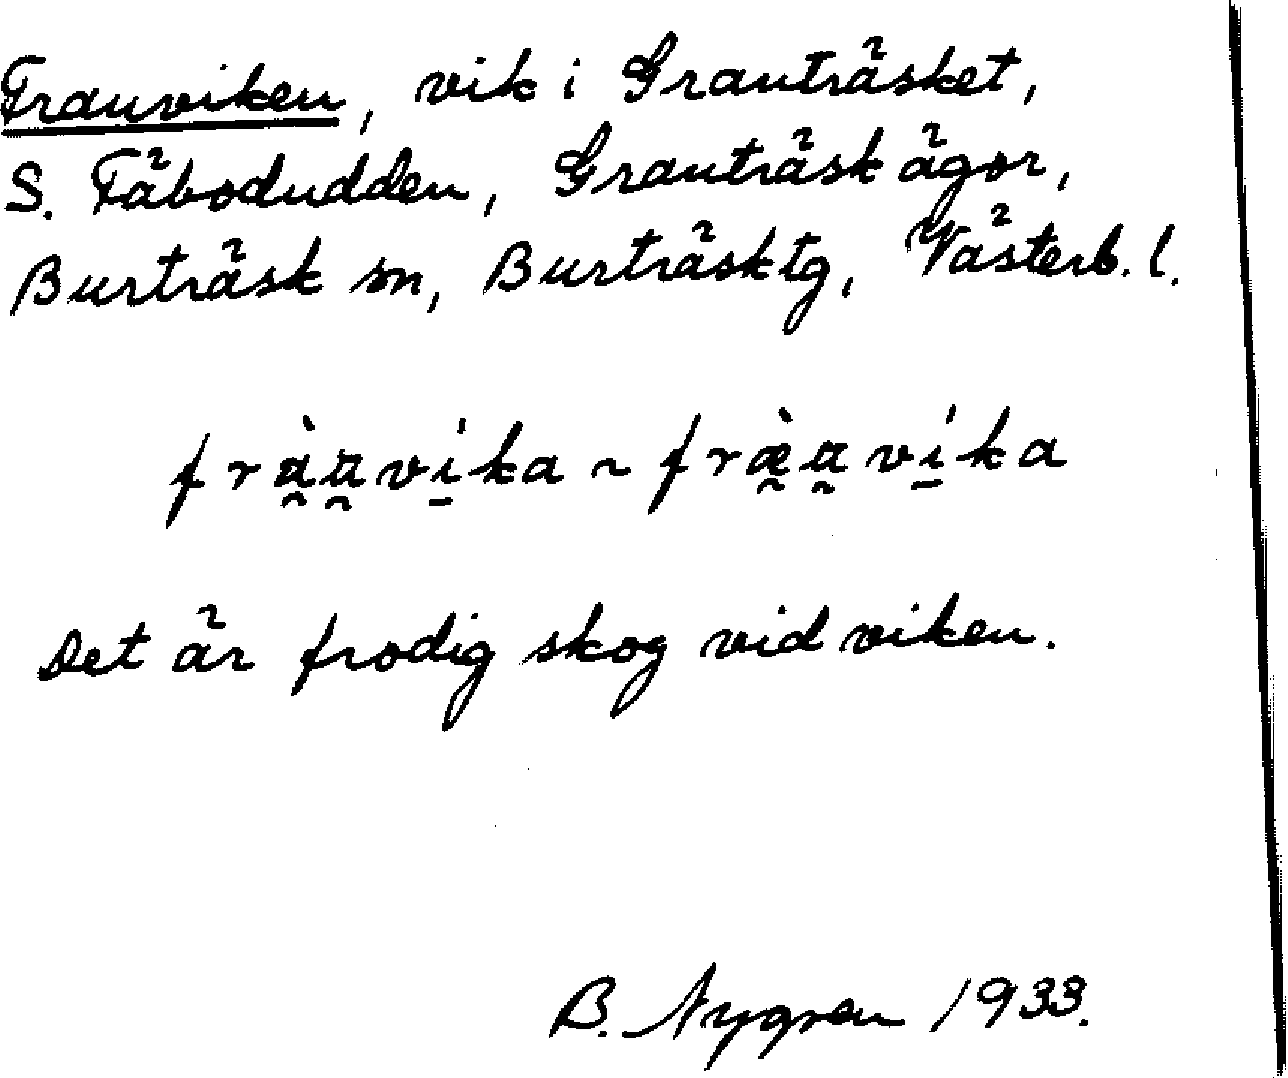 Frauviken, vik i Granträsket,
S. Fäbodudden, Granträsk ägor,
Burträsk sn, Burträsk tg, Västerb. l.
frà̰a̰vḭ́ka ~ fræ̰̀a̰ví̱ka
Det är frodig skog vid viken.
B. Nygren 1933.